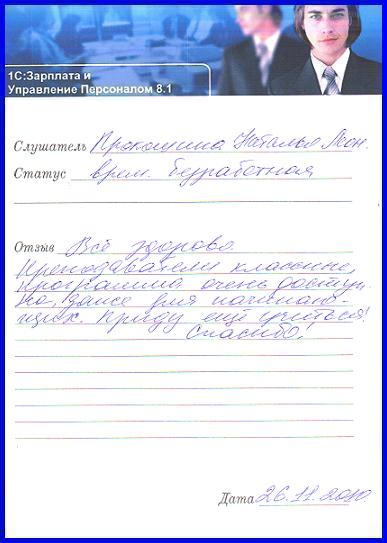 1С:Зарплата и
Управление Персоналом 8.1
Слушатель Прокошина Наталья Леон.
Статус врем. безработная
Отзыв Всё здорово.
Преподаватели классные,
программа очень доступ.
на, даже для начинаю-
щих. Приду ещё учиться!
Спасибо!
Дата 26.11.2010.